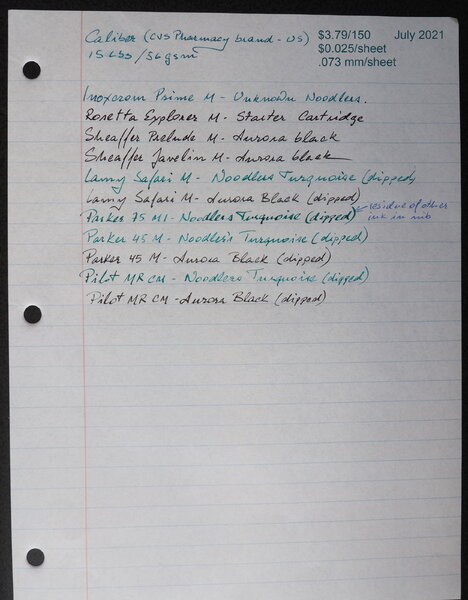 Caliber (CVS Pharmacy brand - US) $3.79/150 July 2021
15 /56 gsm $0.025/sheet
.073 mm/sheet
Inoxcrom Prime M - Unknown Noodlers.
Rosetta Explorer M - Starter Cartridge
Sheaffer Prelude M - Aurora black
Sheaffer Javelin M - Aurora black
Lamy Safari M - Noodlers Turquoise (dipped)
Lamy Safari M - Aurora Black (dipped)
Parker 75 M - Noodlers Turquoise (dipped) residue of other
ink in nib
Parker 45 M - Noodler's Turquoise (dipped)
Parker 45 M - Aurora Black (dipped)
Pilot MR CM - Noodlers Turquoise (dipped)
Pilot MR CM - Aurora Black (dipped)